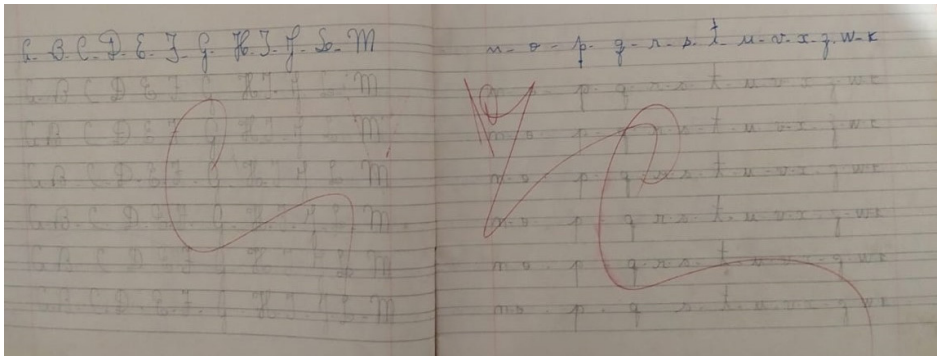 A. B. C. D. E. F. G. H. I. J. L. M
A B C D E F G H I J L M
A B C D E F G H I J L M
A B C D E F G H I J L M
A. B. C. D. E. F. G. H. I. J. L. M
A B C D E F G H I J L M
A. B. C. D. E. F. G. H. I. J. L. M
n - o - p - q - r - s - t - u - v - x - z - w - k
o p q r s t u v x z w k
n o p q r s t u v x z w k
n o p q r s t u v x z w k
n o p q r s t u v x z w k
n o p q r s t u v x z w k
n o p q s t u v x z w k